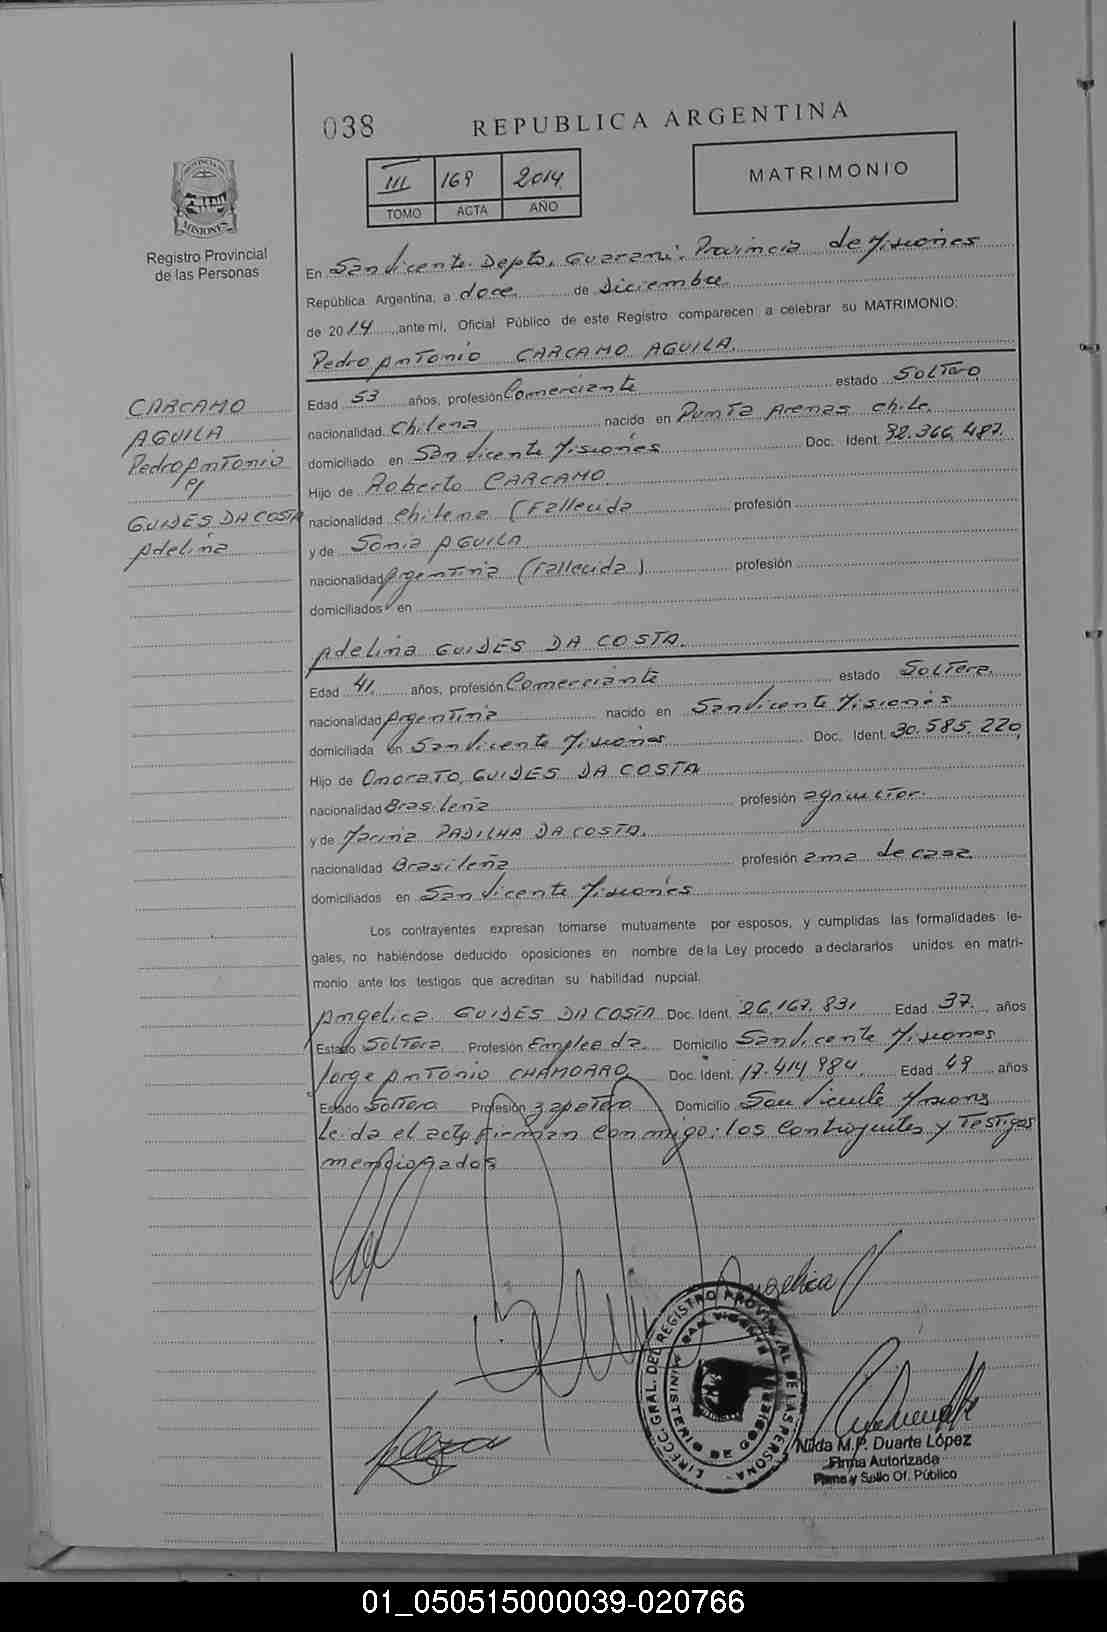 038
REPUBLICA ARGENTINA
III 169 2014
TOMO ACTA AÑO
MATRIMONIO
PROVINCIA DE
MISIONES
Registro Provincial
de las Personas
En San Vicente. Depto. Guarani. Provincia de Misiones
República Argentina, a doce de Diciembre
de 2014 ante mí, Oficial Público de este Registro comparecen a celebrar su MATRIMONIO:
Pedro Antonio CARCAMO AGUILA.
CARCAMO
AGUILA
Pedro Antonio
GUIDES DA COSTA
Adelina
Edad 53 años, profesión Comerciante estado Soltero
nacionalidad Chilena nacido en Punta Arenas Chile.
domiciliado en San Vicente Misiones Doc. Ident. 92.366.487.
Hijo de Roberto CARCAMO
nacionalidad Chilena (Fallecida profesión
y de Sonia AGUILA
nacionalidad Argentina (Fallecida) profesión
domiciliados en
Adelina GUIDES DA COSTA.
Edad 41 años, profesión Comerciante estado Soltera.
nacionalidad Argentina nacido en San Vicente Misiones
domiciliada en San Vicente Misiones Doc. Ident. 30.585.220
Hijo de Onorato GUIDES DA COSTA
nacionalidad Brasileña profesión agricultor.
y de Marina PADILHA DA COSTA.
nacionalidad Brasileña profesión ama de casa
domiciliados en San Vicente Misiones
Los contrayentes expresan tomarse mutuamente por esposos, y cumplidas las formalidades le-
gales, no habiéndose deducido oposiciones en nombre de la Ley procedo a declararlos unidos en matri-
monio ante los testigos que acreditan su habilidad nupcial.
Angelica GUIDES DA COSTA Doc. Ident. 26.167.831 Edad 37 años
Estado Soltera Profesión Empleada Domicilio San Vicente Misiones
Jorge Antonio CHAMORRO Doc. Ident. 17.414.984. Edad 49 años
Estado Soltero Profesión zapatero Domicilio San Vicente Misiones
le da el acto firman conmigo: los Contrayentes y Testigos
mencionados
Angelica
DIRECC. GRAL. DEL REGISTRO PROVINCIAL DE LAS PERSONAS
MINISTERIO DE GOBIERNO
SAN VICENTE
Nilda M.P. Duarte López
Firma Autorizada
Firma y Sello Of. Público
01_050515000039-020766